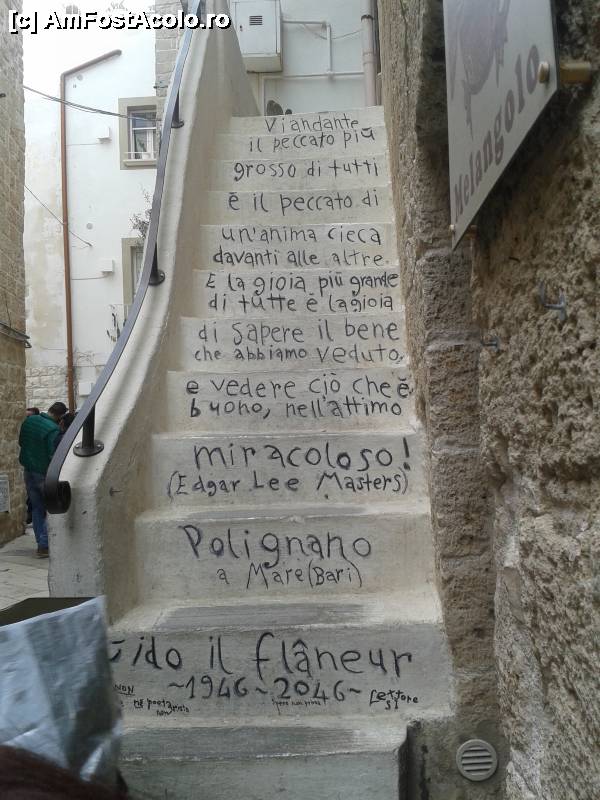 [c] AmFostAcolo.ro
Melangolo
Viandante
il peccato più
grosso di tutti
è il peccato di
un'anima cieca
davanti alle altre.
E la gioia più grande
di tutte è la gioia
di sapere il bene
che abbiamo veduto,
e vedere ciò che è
buono, nell'attimo
miracoloso!
(Edgar Lee Masters)
Polignano
a Mare (Bari)
ido il flâneur
~1946~2046~
NON
nè poeta
non
Lettore
sì